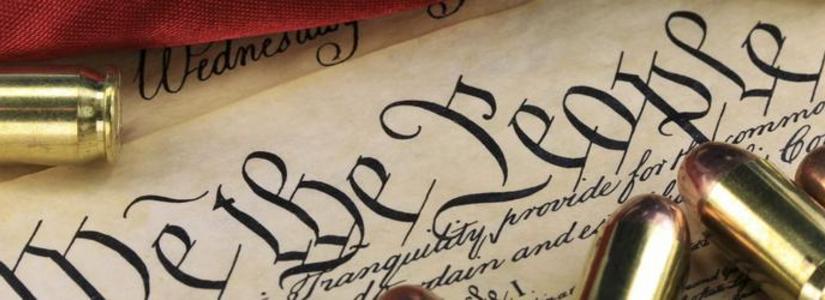 Wednesday
We the People
Tranquility, provide for the common
do ordain and